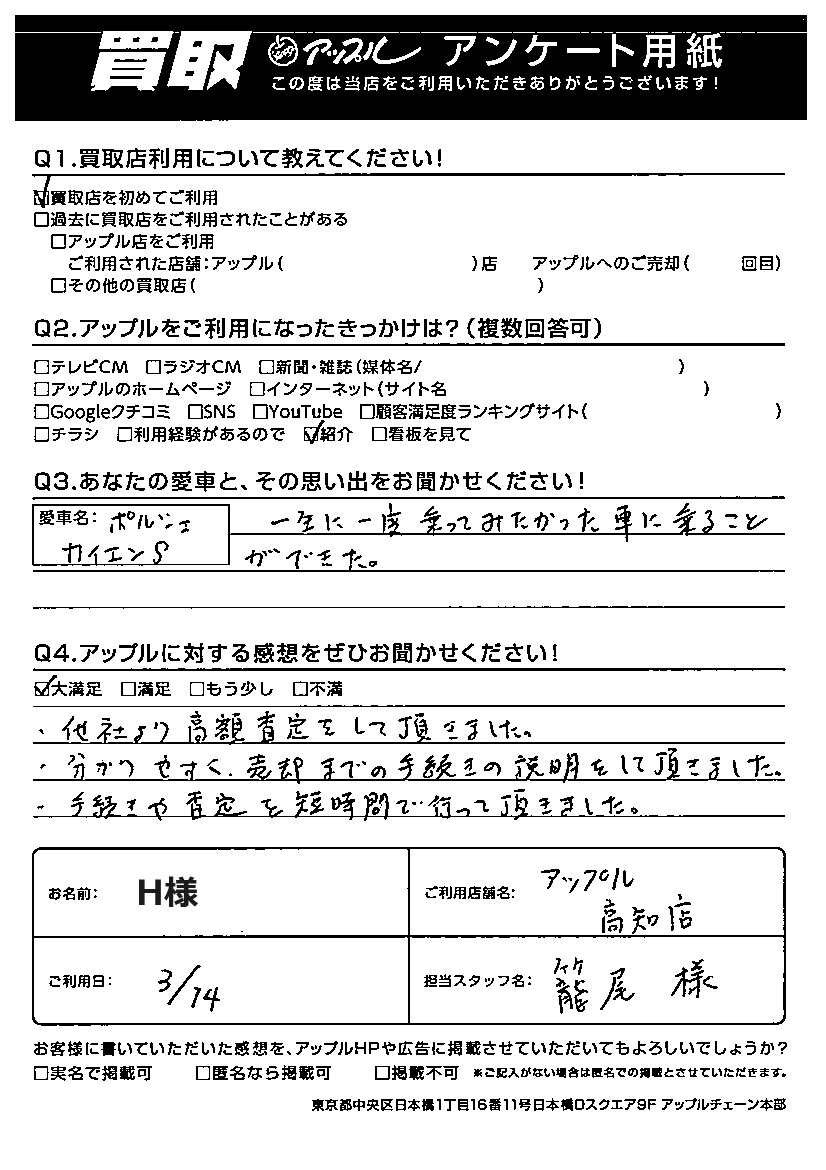 買取 アップル アンケート用紙
この度は当店をご利用いただきありがとうございます!
Q1.買取店利用について教えてください!
☑買取店を初めてご利用
□過去に買取店をご利用されたことがある
□アップル店をご利用
ご利用された店舗:アップル( )店 アップルへのご売却( 回目)
□その他の買取店( )
Q2.アップルをご利用になったきっかけは?(複数回答可)
□テレビCM □ラジオCM □新聞・雑誌(媒体名/ )
□アップルのホームページ □インターネット(サイト名 )
□Googleクチコミ □SNS □YouTube □顧客満足度ランキングサイト( )
□チラシ □利用経験があるので ☑紹介 □看板を見て
Q3.あなたの愛車と、その思い出をお聞かせください!
愛車名: ポルシェ 一生に一度乗ってみたかった車に乗ること
カイエンS ができた。
Q4.アップルに対する感想をぜひお聞かせください!
☑大満足 □満足 □もう少し □不満
・他社より高額査定をして頂きました。
・分かりやすく、売却までの手続きの説明をして頂きました。
・手続きや査定を短時間で行って頂きました。
お名前: H様 ご利用店舗名: アップル
高知店
ご利用日: 3/14 担当スタッフ名: 籠尾 様
お客様に書いていただいた感想を、アップルHPや広告に掲載させていただいてもよろしいでしょうか?
□実名で掲載可 □匿名なら掲載可 □掲載不可 ※ご記入がない場合は匿名での掲載とさせていただきます。
東京都中央区日本橋1丁目16番11号日本橋Dスクエア9F アップルチェーン本部